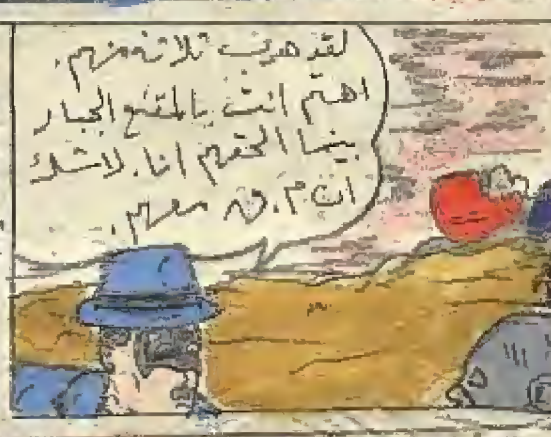 لقد هرب ثلاثة منهم.
اهتم انت بالمقنع الجبار
بينما الحقهم انا. لاشك
ان م.ق معهم.